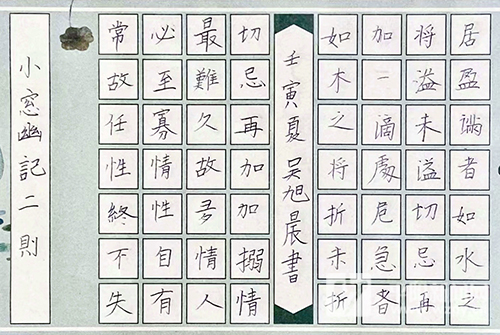 居盈滿者如水之
将溢未溢切忌再
加一滴處危急者
如木之将折未折
壬寅夏 吴旭晨書
切忌再加加搦情
最難久故多情人
必至寡情性自有
常故任性終不失
小窓幽記二則